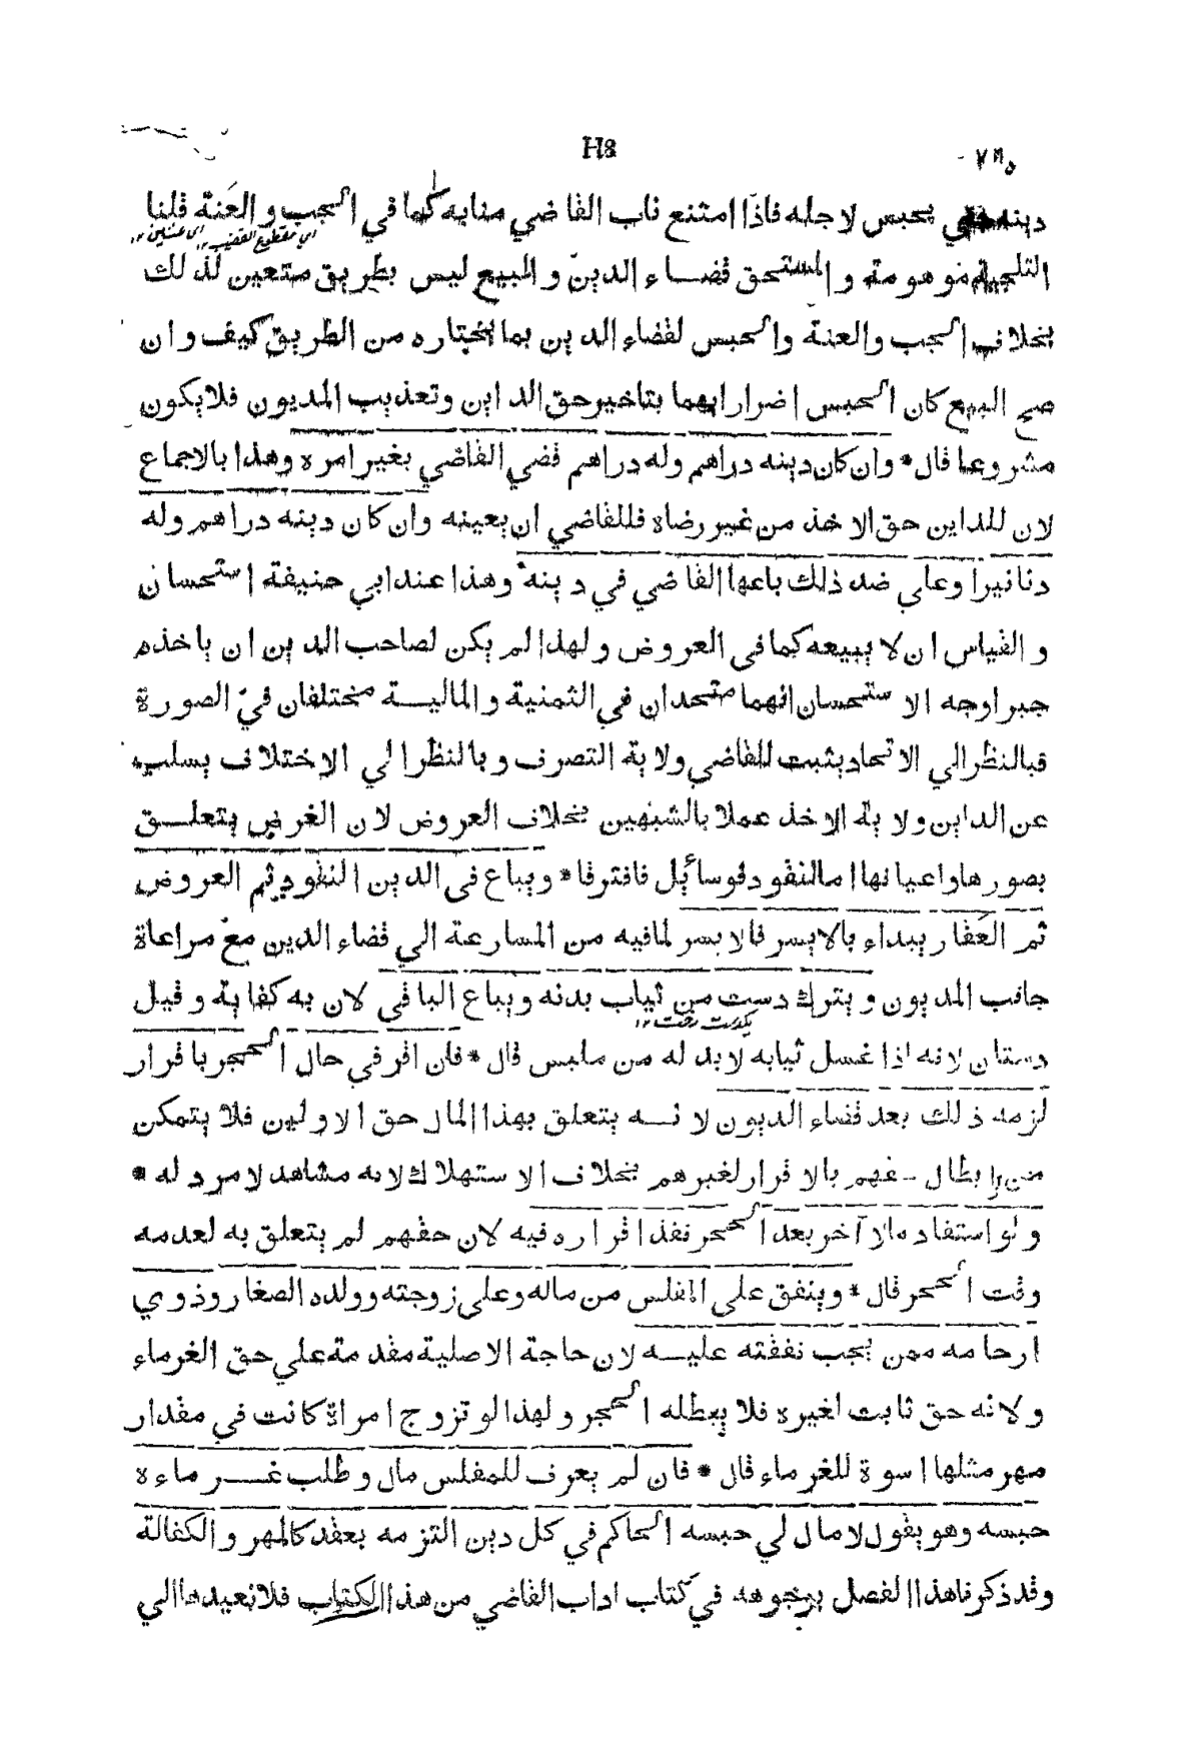 H8
٧٣٥
دينه حتي يحبس لاجله فاذا امتنع ناب القاضي منابه كما في الجب والعنة قلنا
اي مقطوع القضيب ١٢ اي عنين ١٢
التلجية موهومة والمستحق قضاء الدين والبيع ليس بطريق متعين لذلك
بخلاف الجب والعنة والحبس لقضاء الدين بما يختاره من الطريق كيف وان
صح البيع كان الحبس اضرارا بهما بتاخير حق الداين وتعذيب المديون فلا يكون
مشروعا قال * وان كان دينه دراهم وله دراهم قضي القاضي بغير امره وهذا بالاجماع
لان للداين حق الاخذ من غير رضاه فللقاضي ان يعينه وان كان دينه دراهم وله
دنانير او علي ضد ذلك باعها القاضي في دينه وهذا عند ابي حنيفة استحسان
والقياس ان لا يبيعه كما في العروض ولهذا لم يكن لصاحب الدين ان ياخذه
جبرا وجه الاستحسان انهما متحدان في الثمنية والمالية مختلفان في الصورة
فبالنظر الي الاتحاد يثبت للقاضي ولاية التصرف وبالنظر الي الاختلاف يسلب
عن الداين ولاية الاخذ عملا بالشبهين بخلاف العروض لان الغرض يتعلق
بصورها واعيانها اما النقود فوسائل فافترقا * ويباع في الدين النقود ثم العروض
ثم العقار يبداء بالايسر فالايسر لما فيه من المسارعة الي قضاء الدين مع مراعاة
جانب المديون ويترك دست من ثياب بدنه ويباع الباقي لان به كفاية وقيل
يكدست رخت ١٢
دستان لانه اذا غسل ثيابه لا بد له من ملبس قال * فان اقر في حال الحجر باقرار
لزمه ذلك بعد قضاء الديون لانه يتعلق بهذا المال حق الاولين فلا يتمكن
من ابطال حقهم بالاقرار لغيرهم بخلاف الاستهلاك لانه مشاهد لا مرد له *
ولو استفاد مالا آخر بعد الحجر نفذ اقراره فيه لان حقهم لم يتعلق به لعدمه
وقت الحجر قال * وينفق علي المفلس من ماله وعلي زوجته وولده الصغار وذوي
ارحامه ممن يجب نفقته عليه لان حاجة الاصلية مقدمة علي حق الغرماء
ولانه حق ثابت لغيره فلا يبطله الحجر ولهذا لو تزوج امراة كانت في مقدار
مهر مثلها اسوة للغرماء قال * فان لم يعرف للمفلس مال وطلب غرماءه
حبسه وهو يقول لا مال لي حبسه الحاكم في كل دين التزمه بعقد كالمهر والكفالة
وقد ذكرنا هذا الفصل بوجوهه في كتاب اداب القاضي من هذا الكتاب فلا نعيدها الي